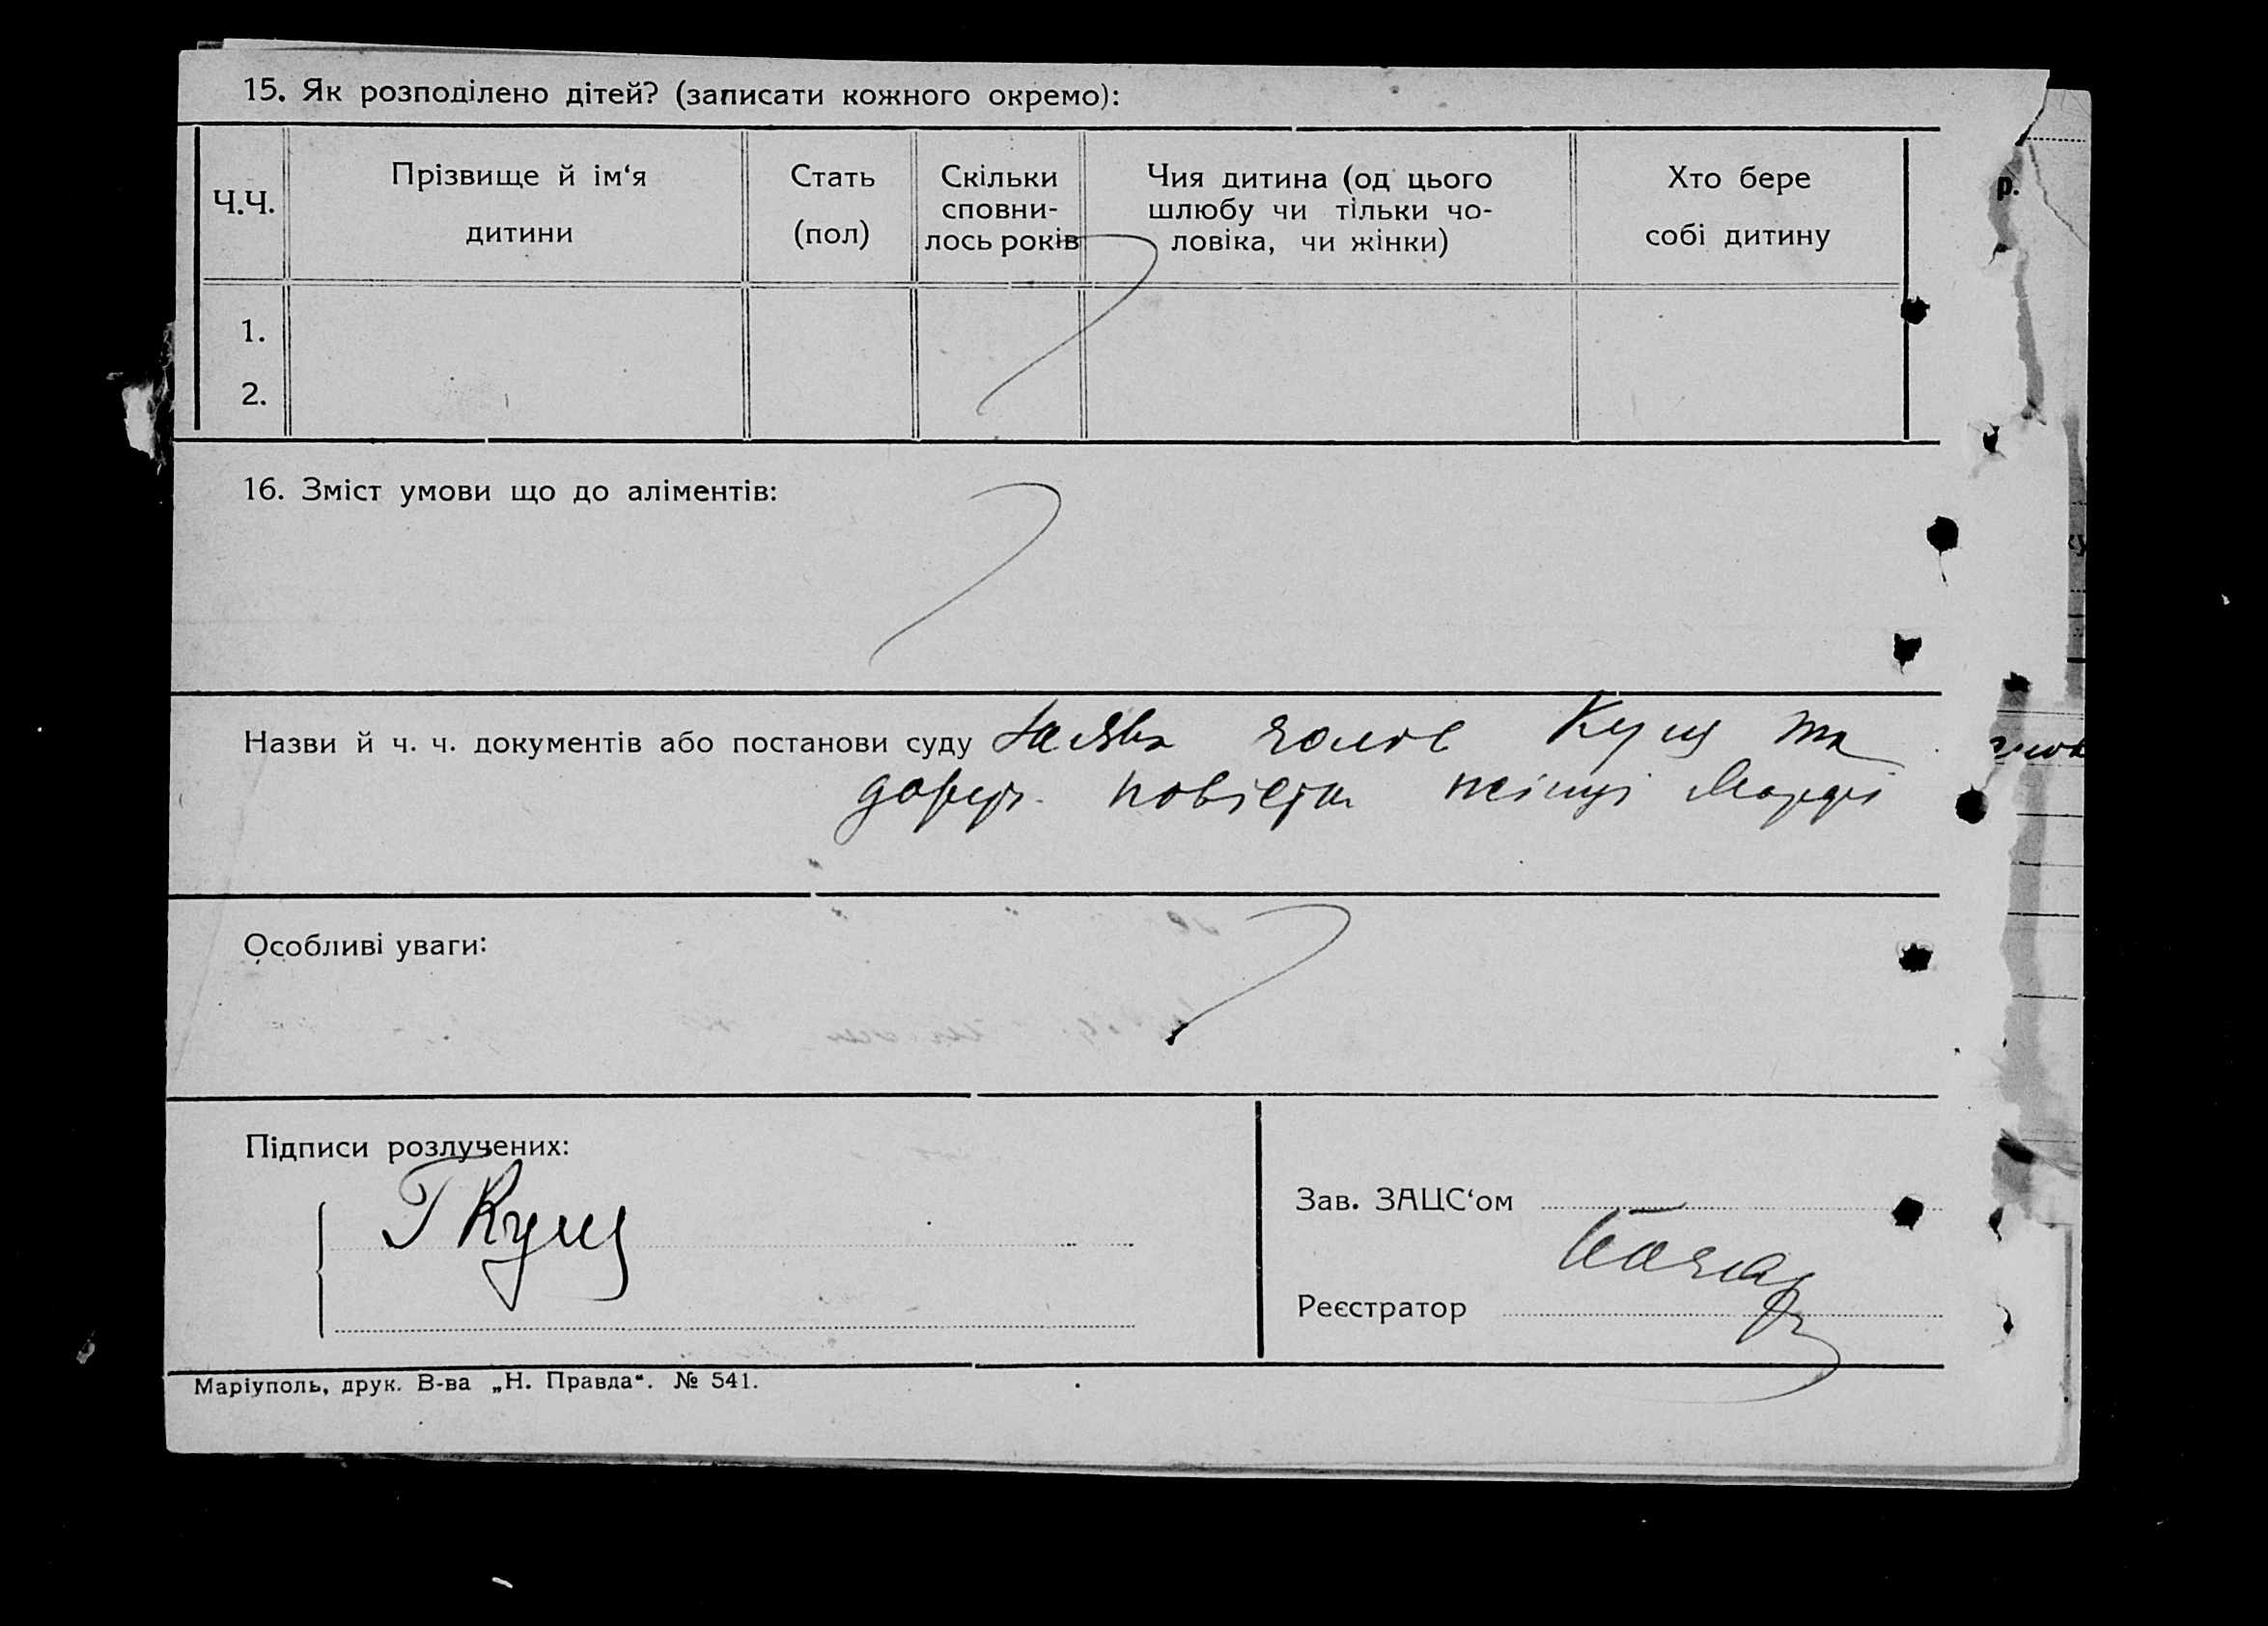 15. Як розподілено дітей? (записати кожного окремо):
Ч.Ч. Прізвище й ім‘я дитини Стать (пол) Скільки сповни-лось років Чия дитина (од цього шлюбу чи тільки чо-ловіка, чи жінки) Хто бере собі дитину
1.
2.
16. Зміст умови що до аліментів:
Назви й ч. ч. документів або постанови суду Заява Кущ та
повістка жінці
Особливі уваги:
Підписи розлучених:
Г Кущ
Зав. ЗАЦС‘ом
Реєстратор
Маріуполь, друк. В-ва „Н. Правда“. № 541.